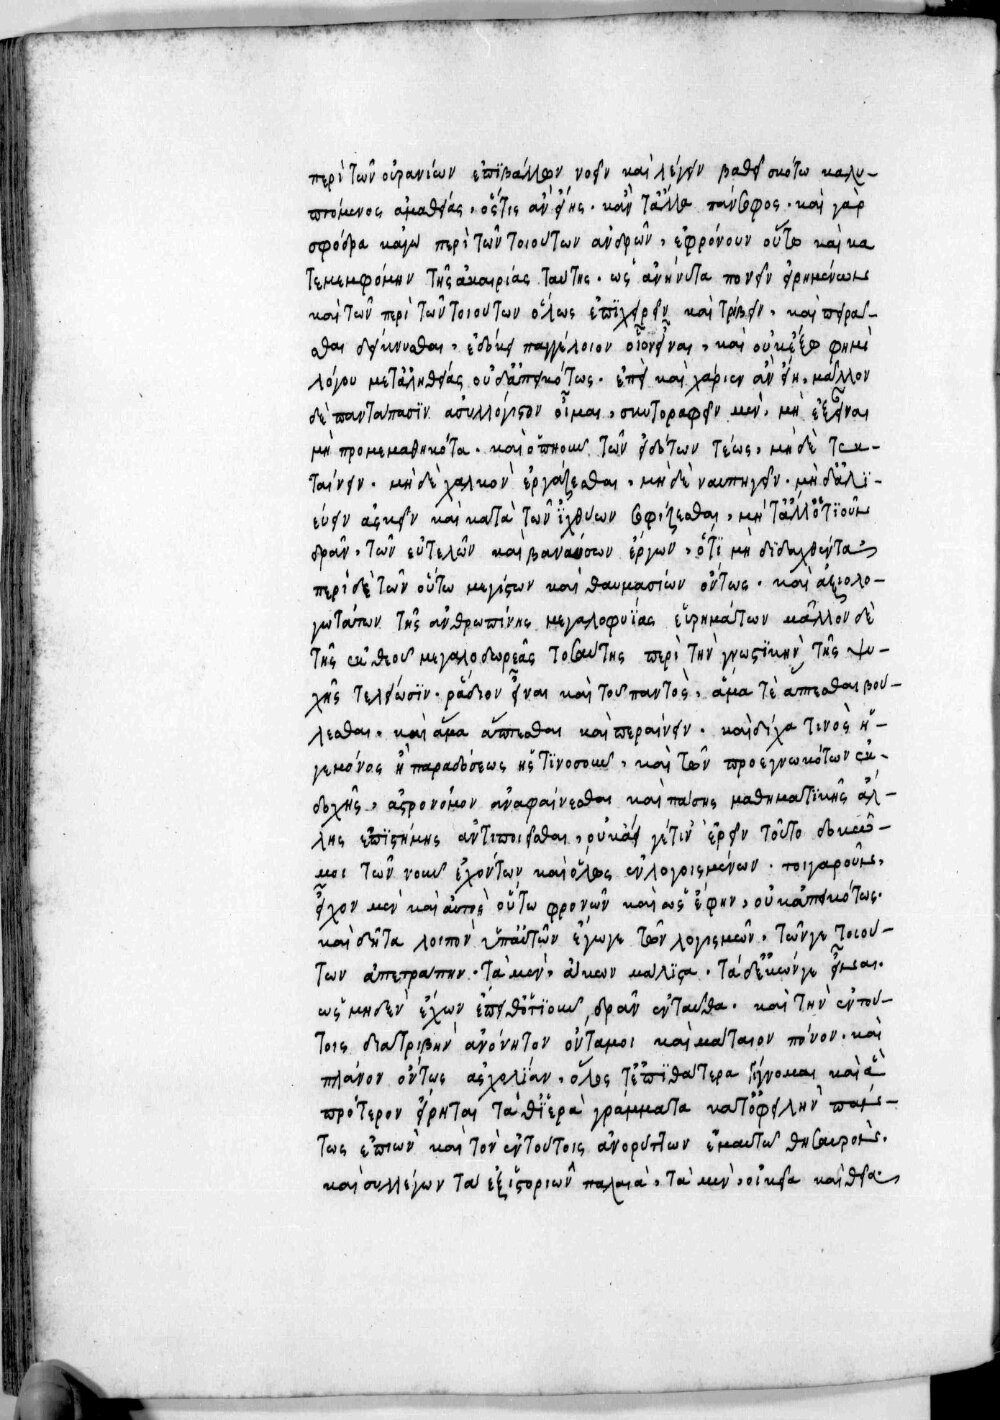 περὶ τῶν οὐρανίων ἐπιβάλλων νοεῖν καὶ λέγειν βαθεῖ σκότω καλυ-
πτόμενος ἀμαθείας, ὅστις ἂν εἴης. κἂν τἄλλα πάνσοφος. καὶ γὰρ
σφόδρα κἀγὼ περὶ τῶν τοιούτων ἀνδρῶν, ἐφρόνουν οὕτω καὶ κα
τεμεμφόμην τῆς ἀκαιρίας ταύτης. ὡς ἀνήνυτα πονεῖν
καὶ τῶν περὶ τῶν τοιούτων ὅλως ἐπιχειρεῖν καὶ τρίβειν, καὶ πειρᾶσ-
θαι δείκνυσθαι, ἐδόκει παγγέλοιον οἷον εἶναι, καὶ οὐκ ἔξω φημὶ
λόγου μετ' ἀληθείας οὐδ' ἀπεικότως. ἐπεὶ καὶ χάριεν ἂν εἴη, μᾶλλον
δὲ πανταπασϊν ἀσυλλόγιστον οἶμαι, σκυτοραφεῖν μὲν, μὴ ἐξεῖναι
μὴ προμεμαθηκότα. καὶ ὅπηουν τῶν εἰδότων τέως, μὴ δὲ τεκ-
ταίνειν. μὴ δὲ χαλκὸν ἐργάζεσθαι, μὴ δὲ ναυπηγεῖν. μὴ δ' ἁλϊ-
εύειν ἀσκεῖν καὶ κατὰ τῶν ἰχθύων σοφίζεσθαι, μήτ' ἄλλ' ὅτϊοῦν
δρᾶν, τῶν εὐτελῶν καὶ βαναύσων ἔργων, ὅτϊ μὴ διδαχθέντα
περὶ δὲ τῶν οὕτω μεγίστων καὶ θαυμασίων ὄντως. καὶ ἀξιολο-
γωτάτων τῆς ἀνθρωπίνης μεγαλοφυΐας εὑρημάτων μᾶλλον δὲ
τῆς ἐκ θεοῦ μεγαλοδωρεᾶς τοσαύτης περὶ τὴν γνωστϊκὴν τῆς ψυ-
χῆς τελείωσϊν. ῥάδιον εἶναι καὶ τοῦ παντὸς, ἅμα τὲ ἅπτεσθαι βού-
λεσθαι, καὶ ἅμα ἅπτεσθαι καὶ περαίνειν. καὶ δίχα τινὸς ἡ-
γεμόνος ἢ παραδόσεως ἧς τϊνοσοῦν, καὶ τῶν προεγνωκότων ἐκ-
δοχῆς, ἀστρονόμον ἀναφαίνεσθαι καὶ πάσης μαθηματϊκῆς ἄλ-
λης ἐπϊστήμης ἀντιποιεῖσθαι, οὐκ ἄν γέ τιν' ἐρεῖν τοῦτο δοκεῖ
μοι τῶν νοῦν ἐχόντων καὶ ὅλως εὖ λογισμένων. τοιγαροῦν,
εἶχον μὲν καὶ αὐτὸς οὕτω φρονῶν καὶ ὡς ἔφην, οὐκ ἀπεικότως.
καὶ δῆτα λοιπὸν ὑπ' αὐτῶν ἔγωγε τῶν λογισμῶν, τῶν γε τοιού-
των ἀπετράπην. τὰ μὲν, ἄκων μάλιστα. τὰ δ' ἑκών γε εἶναι.
ὡς μηδὲν ἔχων ἐπειθ' ὅτϊοῦν δρᾶν ἐνταῦθα. καὶ τὴν ἐν τού-
τοις διατριβὴν ἀνόνητον οὖσάν μοι καὶ μάταιον πόνον. καὶ
πλάνον ὄντως ἀσχολίαν, ὅλος τ' ἐπϊ θάτερα γίγνομαι καὶ ἃ
πρότερον εἴρηται τὰ θ' ἱερὰ γράμματα κατ' ὀφειλὴν πάν-
τως ἐπιὼν καὶ τὸν ἐν τούτοις ἀνορύττων ἐμαυτῶ θησαυρὸν.
καὶ συλλέγων τὰ ἐξ ἱστοριῶν παλαιὰ, τὰ μὲν, οἰκεῖα καὶ θεῖα